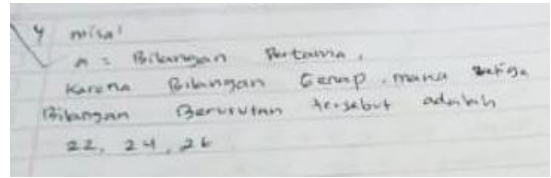 4 misal
n = Bilangan Pertama.
Karena Bilangan Genap, maka ketiga
Bilangan Berurutan tersebut adalah
22, 24, 26